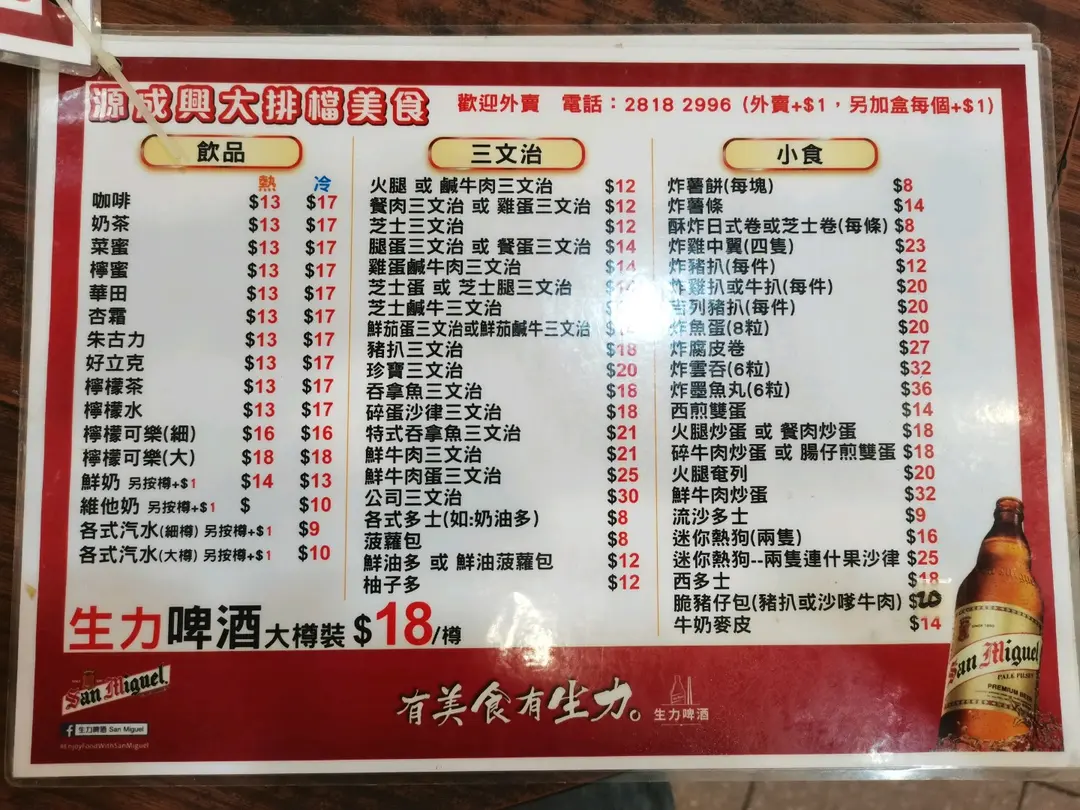 源成興大排檔美食
歡迎外賣 電話：2818 2996 (外賣+$1，另加盒每個+$1)
飲品
熱 冷
咖啡 $13 $17
奶茶 $13 $17
菜蜜 $13 $17
檸蜜 $13 $17
華田 $13 $17
杏霜 $13 $17
朱古力 $13 $17
好立克 $13 $17
檸檬茶 $13 $17
檸檬水 $13 $17
檸檬可樂(細) $16 $16
檸檬可樂(大) $18 $18
鮮奶 另按樽+$1 $14 $13
維他奶 另按樽+$1 $ $10
各式汽水(細樽) 另按樽+$1 $9
各式汽水(大樽) 另按樽+$1 $10
三文治
火腿 或 鹹牛肉三文治 $12
餐肉三文治 或 雞蛋三文治 $12
芝士三文治 $12
腿蛋三文治 或 餐蛋三文治 $14
雞蛋鹹牛肉三文治 $14
芝士蛋 或 芝士腿三文治
芝士鹹牛三文治
鮮茄蛋三文治或鮮茄鹹牛三文治
豬扒三文治 $18
珍寶三文治 $20
吞拿魚三文治 $18
碎蛋沙律三文治 $18
特式吞拿魚三文治 $21
鮮牛肉三文治 $21
鮮牛肉蛋三文治 $25
公司三文治 $30
各式多士(如:奶油多) $8
菠蘿包 $8
鮮油多 或 鮮油菠蘿包 $12
柚子多 $12
小食
炸薯餅(每塊) $8
炸薯條 $14
酥炸日式卷或芝士卷(每條) $8
炸雞中翼(四隻) $23
炸豬扒(每件) $12
炸雞扒或牛扒(每件) $20
吉列豬扒(每件) $20
炸魚蛋(8粒) $20
炸腐皮卷 $27
炸雲吞(6粒) $32
炸墨魚丸(6粒) $36
西煎雙蛋 $14
火腿炒蛋 或 餐肉炒蛋 $18
碎牛肉炒蛋 或 腸仔煎雙蛋 $18
火腿奄列 $20
鮮牛肉炒蛋 $32
流沙多士 $9
迷你熱狗(兩隻) $16
迷你熱狗--兩隻連什果沙律 $25
西多士 $18
脆豬仔包(豬扒或沙嗲牛肉) $20
牛奶麥皮 $14
生力啤酒大樽裝 $18/樽
San Miguel
生力啤酒 San Miguel
#EnjoyFoodWithSanMiguel
有美食有生力。
生力啤酒
San Miguel
PALE PILSEN
PREMIUM BEER